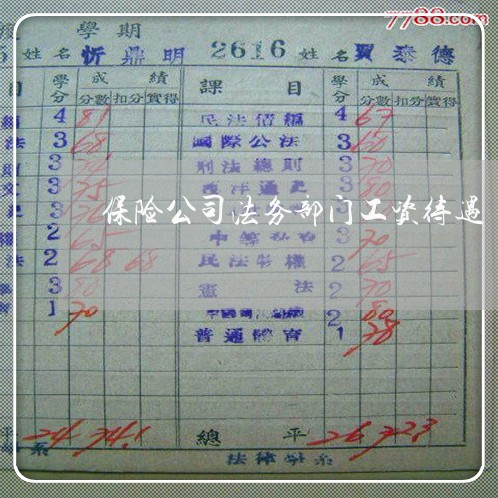 7788.com
學期
姓名 忻鼎明 2616 姓名 賈泰德
目 學分 成績 課目 學分 成績
分數 扣分 實得 分數 扣分 實得
4 81 民法債編 4 67
法 3 68 國際公法 3 60
3 刑法總則 3 70
3 75 西洋通史 3 80
保险公司法务部门工资待遇
2 65 3 70
法 2 68 68 民法物權 2 65
3 80 憲法 2 70
1 70 2 80
普通體育 1 78
平 24 74.1 總平 26 72.3
系 法律學系